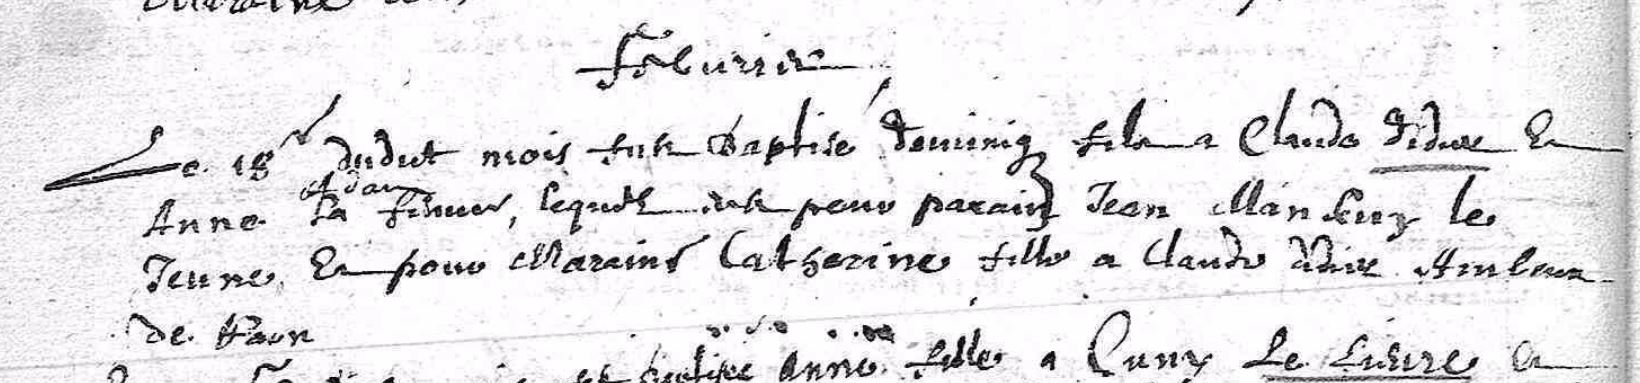 Febvrier
Le 18e dudit mois fut Baptisé Dominiq fils a Claude didier Et
Adam
Anne sa femme, lequel eut pour parain Jean Mansuy le
Jeune, Et pour Maraine Catherine fille a Claude didier
de Raon
Anne fille a Cuny Le Lievre Et